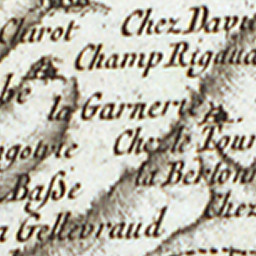 Clirot Chez Davi
Champ Rigaud
be
la Garnerie
Chez le Tour
la Berlon
Basse
Chez
a Gellevraud